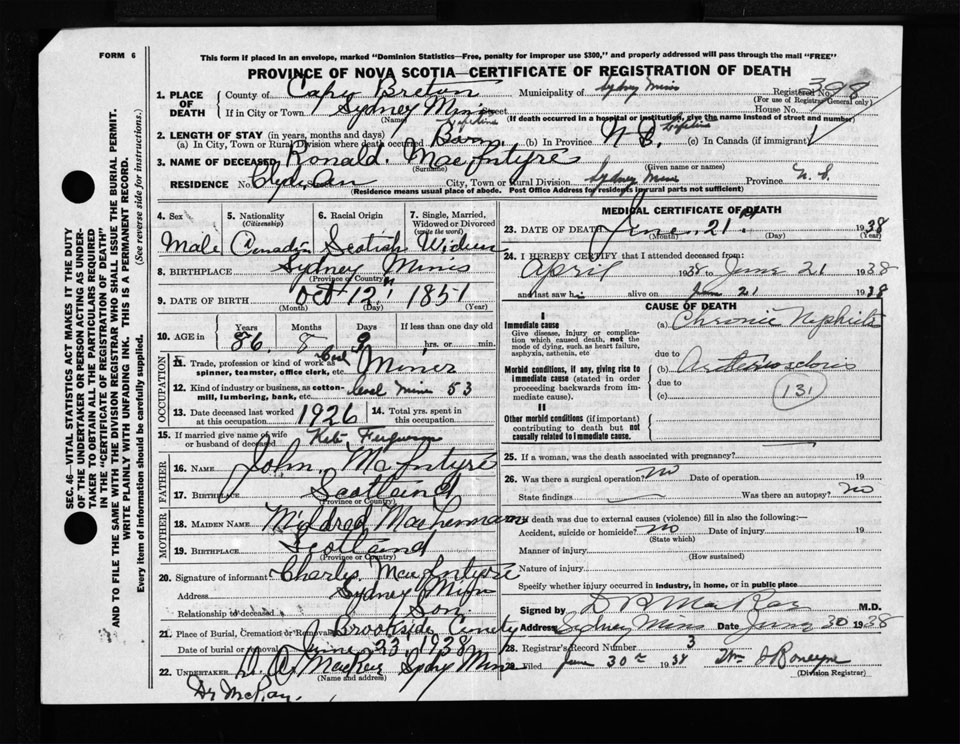 FORM 6
This form if placed in an envelope, marked "Dominion Statistics—Free, penalty for improper use $300," and properly addressed will pass through the mail "FREE"
PROVINCE OF NOVA SCOTIA—CERTIFICATE OF REGISTRATION OF DEATH
SEC. 46—VITAL STATISTICS ACT MAKES IT THE DUTY
OF THE UNDERTAKER OR PERSON ACTING AS UNDER-
TAKER TO OBTAIN ALL THE PARTICULARS REQUIRED
IN THE "CERTIFICATE OF REGISTRATION OF DEATH"
AND TO FILE THE SAME WITH THE DIVISION REGISTRAR WHO SHALL ISSUE THE BURIAL PERMIT.
WRITE PLAINLY WITH UNFADING INK. THIS IS A PERMANENT RECORD.
Every item of information should be carefully supplied. (See reverse side for instructions.)
1. PLACE OF DEATH County of Cape Breton Municipality of Sydney Mines Registered No.
(For use of Registrar General only)
If in City or Town Sydney Mines Street House No.
(Name) (If death occurred in a hospital or institution, give the name instead of street and number)
2. LENGTH OF STAY (in years, months and days)
(a) In City, Town or Rural Division where death occurred Born Lifetime (b) In Province N.S. Lifetime (c) In Canada (if immigrant)
3. NAME OF DECEASED Ronald MacIntyre
(Surname) (Given name or names)
RESIDENCE No. Clyde Ave City, Town or Rural Division Sydney Mines Province N.S.
(Residence means usual place of abode. Post Office Address for residents in rural parts not sufficient)
4. Sex 5. Nationality (Citizenship) 6. Racial Origin 7. Single, Married, Widowed or Divorced (write the word)
Male Canadian Scotish
8. BIRTHPLACE Sydney Mines
(Province or Country)
9. DATE OF BIRTH Oct 12 1851
(Month) (Day) (Year)
10. AGE in Years Months Days If less than one day old
86 8 9 hrs. or min.
OCCUPATION
11. Trade, profession or kind of work as spinner, teamster, office clerk, etc. Coal Miner
12. Kind of industry or business, as cotton-mill, lumbering, bank, etc. Coal Mine 53
13. Date deceased last worked at this occupation 1926 14. Total yrs. spent in this occupation
15. If married give name of wife or husband of deceased Ferguson
FATHER
16. NAME John MacIntyre
17. BIRTHPLACE Scotland
(Province or Country)
MOTHER
18. MAIDEN NAME Mildred MacLennan
19. BIRTHPLACE Scotland
(Province or Country)
20. Signature of informant Charles MacIntyre
Address Sydney Mines
Relationship to deceased Son
21. Place of Burial, Cremation or Removal Brookside
Date of burial or removal June 23 1938
22. UNDERTAKER Sydney Mines
(Name and address)
MEDICAL CERTIFICATE OF DEATH
23. DATE OF DEATH June 21 1938
(Month) (Day) (Year)
24. I HEREBY CERTIFY that I attended deceased from
April 1938 to June 21 1938
and last saw h alive on June 21 1938
CAUSE OF DEATH
I
Immediate cause (a) Chronic Nephritis
Give disease, injury or complication which caused death, not the mode of dying, such as heart failure, asphyxia, asthenia, etc
due to
Morbid conditions, if any, giving rise to immediate cause (stated in order proceeding backwards from immediate cause). (b) Arteriosclerosis
due to
(c)
131
II
Other morbid conditions (if important) contributing to death but not causally related to immediate cause.
25. If a woman, was the death associated with pregnancy?
26. Was there a surgical operation? no Date of operation 19
State findings Was there an autopsy? No
If death was due to external causes (violence) fill in also the following:—
Accident, suicide or homicide? no Date of injury 19
(State which)
Manner of injury
(How sustained)
Nature of injury
Specify whether injury occurred in industry, in home, or in public place
Signed by M.D.
Address Sydney Mines Date June 30 1938
28. Registrar's Record Number 3
29. Filed June 30th 1938
(Division Registrar)